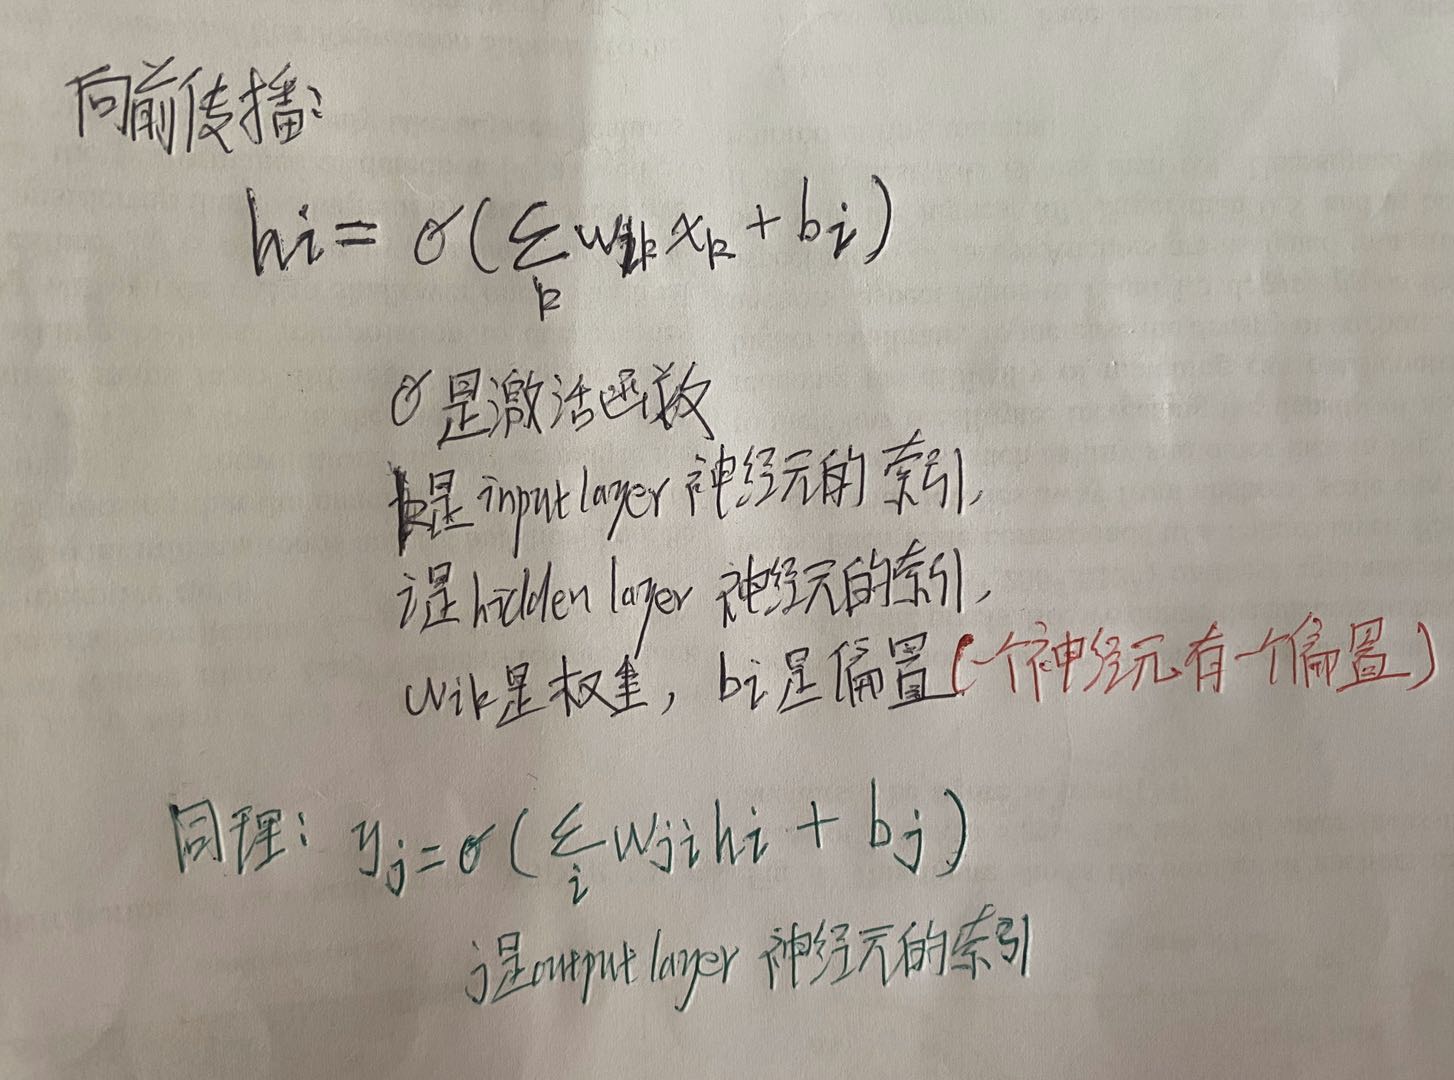 向前传播：
hi = σ(∑ wik xk + bi)
k
σ是激活函数
k是input layer 神经元的索引，
i是hidden layer 神经元的索引，
wik是权重，bi是偏置(一个神经元有一个偏置)
同理：yj = σ(∑ wji hi + bj)
i
j是output layer 神经元的索引